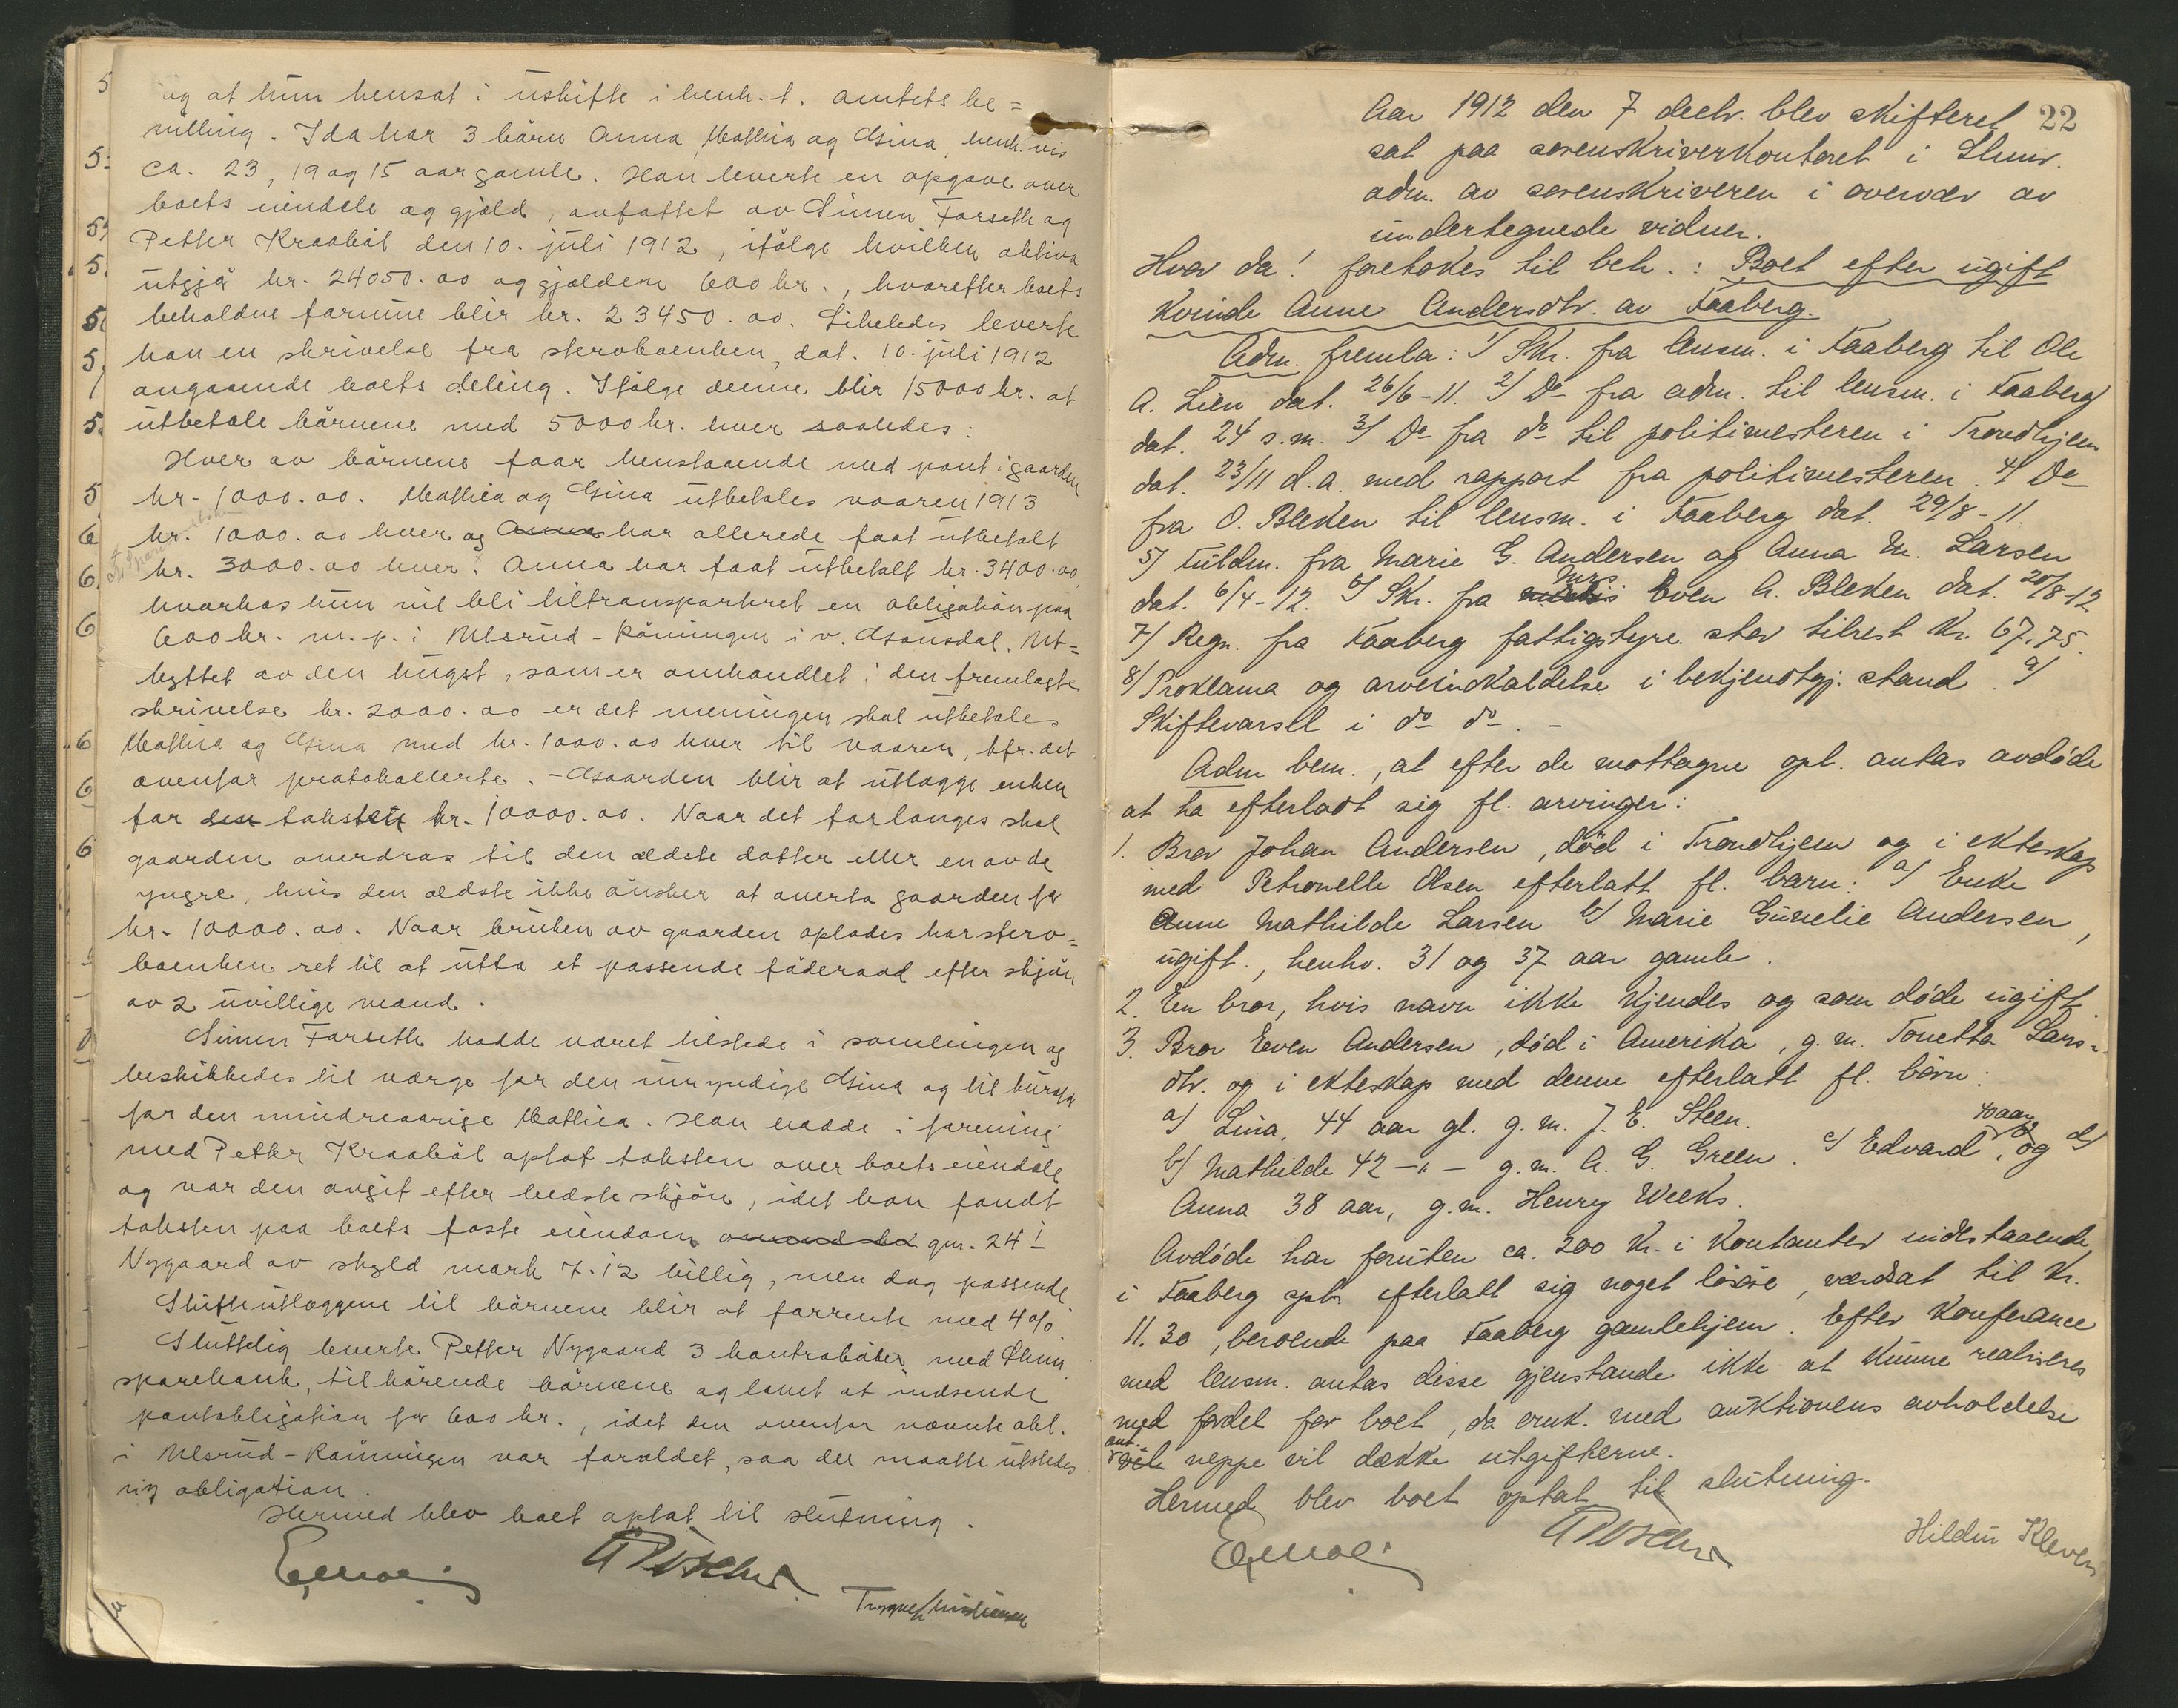 og at hun hensat i uskifte i henh. t. amtets be=
villing. Ida har 3 börn Anna, Mathea og Gina, henh.vis
ca. 23, 19 og 15 aar gamle. Han leverte en opgave over
boets eiendele og gjæld, avfattet av Simen Forseth og
Petter Kraaböl den 10. juli 1912, ifölge hvilken aktiva
utgjör kr. 24050.00 og gjælden 600 kr., hvorefter boets
beholdne formue blir kr. 23450.00. Likeledes leverte
han en skrivelse fra stervboenken, dat. 10. juli 1912
angaaende boets deling. Ifölge denne blir 15000 kr. at
utbetale börnene med 5000 kr. hver saaledes:
Hver av börnene faar henstaaende med pant i gaarden
kr. 1000.00. Mathea og Gina utbetales vaaren 1913
kr. 1000.00 hver og Anna har allerede faat utbetalt
kr. 3000.00 hver. Anna har faat utbetalt kr. 3400.00,
hvorhos hun vil bli tiltransportert en obligation paa
600 kr. m. p. i Ulsrud-Rönningen i v. Gausdal. Ut=
byttet av den hingst, som er omhandlet i den fremlagte
skrivelse kr. 2000.00 er det meningen skal utbetales
Mathea og Gina med kr. 1000.00 hver til vaaren, kfr. det
ovenfor protokollerte. - Gaarden blir at utlægge enken
for den taksten kr. 10000.00. Naar det forlanges skal
gaarden overdras til den ældste datter eller en av de
yngre, hvis den ældste ikke önsker at overta gaarden for
kr. 10000.00. Naar bruken av gaarden oplades har sterv=
boenken ret til at utta et passende föderaad efter skjön
av 2 uvillige mænd.
Simen Forseth hadde været tilstede i samlingen og
beskikkedes til værge for den umyndige Gina og til kurator
for den mindreaarige Mathea. Han hadde i forening
med Petter Kraaböl optat taksten over boets eiendele
og var den avgit efter bedste skjön, idet han fandt
taksten paa boets faste eiendom gnr. 24 1
Nygaard av skyld mark 7.12 billig, men dog passende.
Skifteutlæggene til börnene blir at forrente med 4%.
Sluttelig leverte Petter Nygaard 3 kontraböker med Lhmr.
sparebank, tilhörende börnene og lovet at indsende
pantobligation for 600 kr., idet den ovenfor nævnte obl.
i Ulsrud-Rönningen var forældet, saa der maatte utstedes
ny obligation.
Hermed blev boet optat til slutning.
22
Aar 1912 den 7 decbr. blev skifteret
sat paa sorenskriverkontoret i Lhmr.
adm. av sorenskriveren i overvær av
undertegnede vidner.
Hvor da! foretokes til beh.: Boet efter ugift
kvinde Anne Andersdtr. av Faaberg.
Adm. fremla: 1/ Skr. fra lensm. i Faaberg til Ole
A. Lien dat. 26/6-11. 2/ Do fra adm. til lensm. i Faaberg
dat. 24 s.m. 3/ Do fra do til politimesteren i Trondhjem
dat. 23/11 d.a. med rapport fra politimesteren. 4/ Do
fra O. Bleken til lensm. i Faaberg dat. 29/8-11.
5/ Fuldm. fra Marie G. Andersen og Anna M. Larsen
dat. 6/4-12. 6/ Skr. fra Mrs. Even A. Bleken dat. 20/8-12
7/ Regn. fra Faaberg fattigstyre stor tilrest kr. 67.75.
8/ Proklama og arveindkaldelse i bekjendtgj. stand. 9/
Skiftevarsel i do do. -
Adm bem., at efter de mottagne opl. antas avdöde
at ha efterladt sig fl. arvinger:
1. Bror Johan Andersen, död i Trondhjem og i ekteskap
med Petronelle Olsen efterlatt fl. barn: a/ Enke
Anne Mathilde Larsen b/ Marie Gunelie Andersen,
ugift., henhv. 31 og 37 aar gamle.
2. En bror, hvis navn ikke kjendes og som döde ugift.
3. Bror Even Andersen, död i Amerika, g. m. Tonetta Lars-
dtr. og i ekteskap med denne efterlatt fl. börn:
a/ Lina, 44 aar gl. g. m. J. E. Steen.
b/ Mathilde 42 -"- g. m. A. G. Green. c/ Edvard, 40 aar og d/
Anna 38 aar, g. m. Henry Weeks.
Avdöde har foruten ca. 200 kr. i kontanter indestaaende
i Faaberg spb. efterlatt sig noget lösöre, værdsat til kr.
11.30, beroende paa Faaberg gamlehjem. Efter konferance
med lensm. antas disse gjenstande ikke at kunne realiseres
med fordel for boet, da omk. med auktionens avholdelse
ant. neppe vil dække utgifterne.
Hermed blev boet optat til slutning.
Hildur Kleven